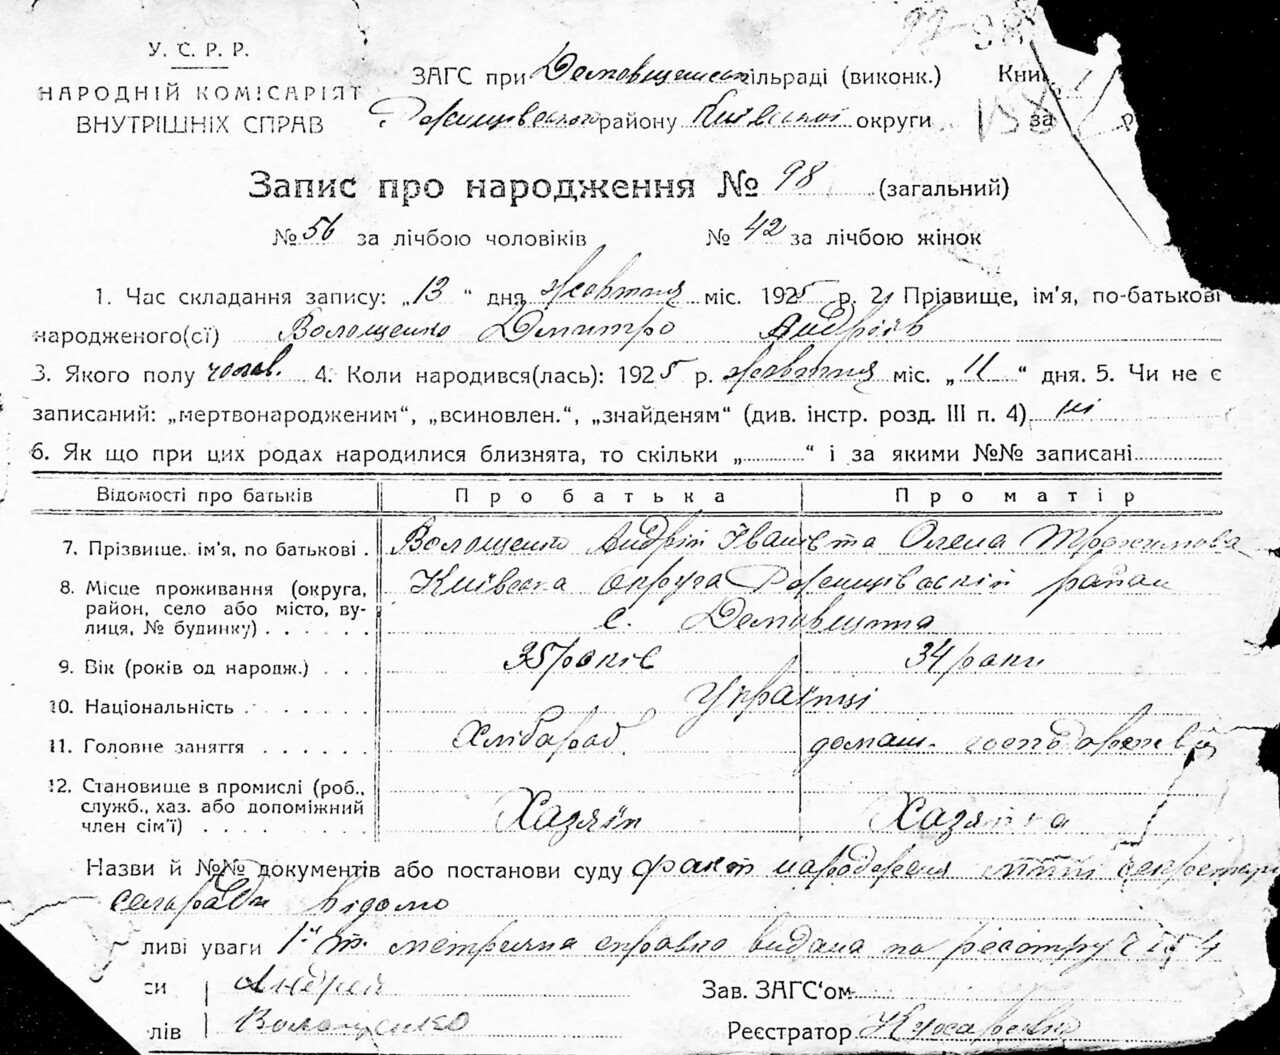 92-98
У. С. Р. Р.
НАРОДНІЙ КОМІСАРІЯТ
ВНУТРІШНІХ СПРАВ
ЗАГС при сільраді (виконк.) Кни
району Київської округи 158 за р
Запис про народження № 98 (загальний)
№ 56 за лічбою чоловіків № 42 за лічбою жінок
1. Час складання запису: „13“ дня жовтня міс. 1925 р. 2. Прізвище, ім'я, по-батькові
народженого(сї) Волощенко Дмитро Андріїв
3. Якого полу чолов. 4. Коли народився(лась): 1925 р. жовтня міс. „11“ дня. 5. Чи не є
записаний: „мертвонародженим“, „всиновлен.“, „знайденям“ (див. інстр. розд. III п. 4) ні
6. Як що при цих родах народилися близнята, то скільки „ “ і за якими №№ записані
Відомості про батьків Про батька Про матір
7. Прізвище, ім'я, по батькові . Волощенко Андрій Іванів та Олена Трохимова
8. Місце проживання (округа, Київська округа район
район, село або місто, ву- с.
лиця, № будинку) . . . . . .
9. Вік (років од народж.) . . . 35 років 34 роки
10. Національність . . . . . . . Українці
11. Головне заняття . . . . . . Хлібороб домаш. господарства
12. Становище в промислі (роб.,
служб., хаз. або допоміжний Хазяїн Хазяйка
член сім'ї) . . . . . . . .
Назви й №№ документів або постанови суду факт народження
сельради відомо
ливі уваги метрична справка видана по реєстру
си Андрей Зав. ЗАГС'ом
лів Волощенко Реєстратор